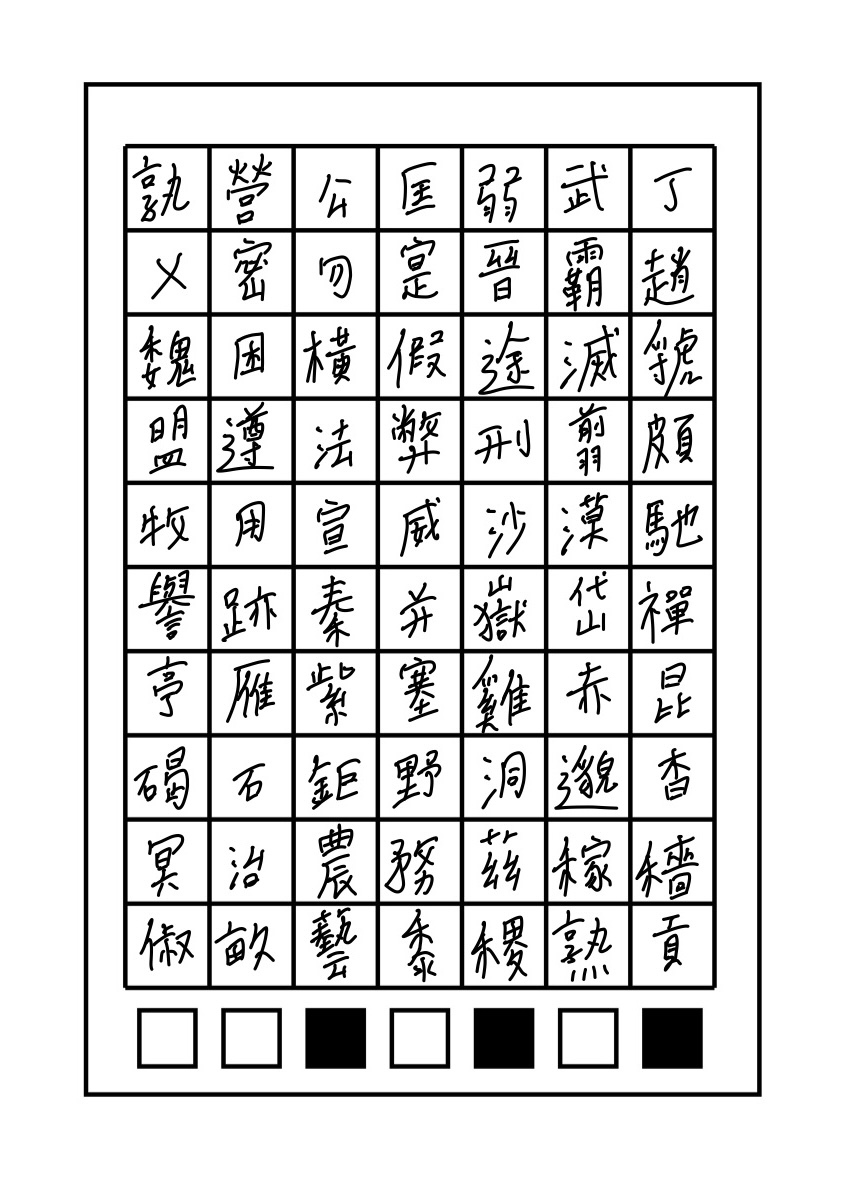 孰營公匡弱武丁
乂密勿寔晉霸趙
魏困橫假途滅虢
盟遵法弊刑翦頗
牧用宣威沙漠馳
譽跡秦并嶽岱禪
亭雁紫塞雞赤昆
碣石鉅野洞邈杳
冥治農務茲稼穡
俶畝藝黍稷熟貢